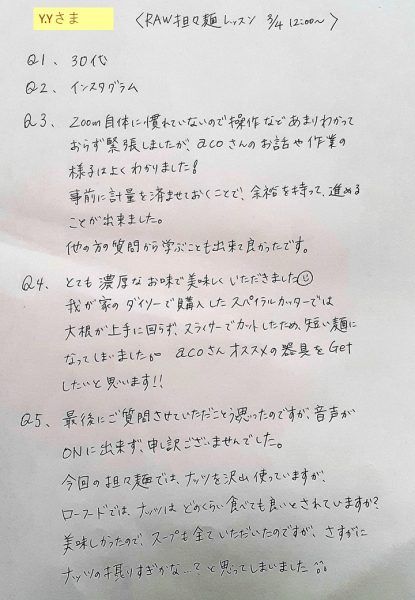 Y.Yさま 〈RAW担々麺レッスン 3/4 12:00〜〉
Q1、30代
Q2、インスタグラム
Q3、Zoom自体に慣れていないので操作などあまりわかって
おらず緊張しましたが、acoさんのお話や作業の
様子はよくわかりました!
事前に計量を済ませておくことで、余裕を持って、進める
ことが出来ました。
他の方の質問から学ぶことも出来て良かったです。
Q4、とても濃厚なお味で美味しくいただきました☺
我が家のダイソーで購入したスパイラルカッターでは
大根が上手に回らず、スライサーでカットしたため、短い麺に
なってしまいました acoさんオススメの器具をGet
したいと思います!!
Q5、最後にご質問させていただこう思ったのですが音声が
ONに出来ず、申し訳ございませんでした。
今回の担々麺では、ナッツを沢山使っていますが、
ローフードでは、ナッツはどのくらい食べても良いとされていますか?
美味しかったので、スープも全ていただいたのですが、さすがに
ナッツの摂りすぎかな…?と思ってしまいました